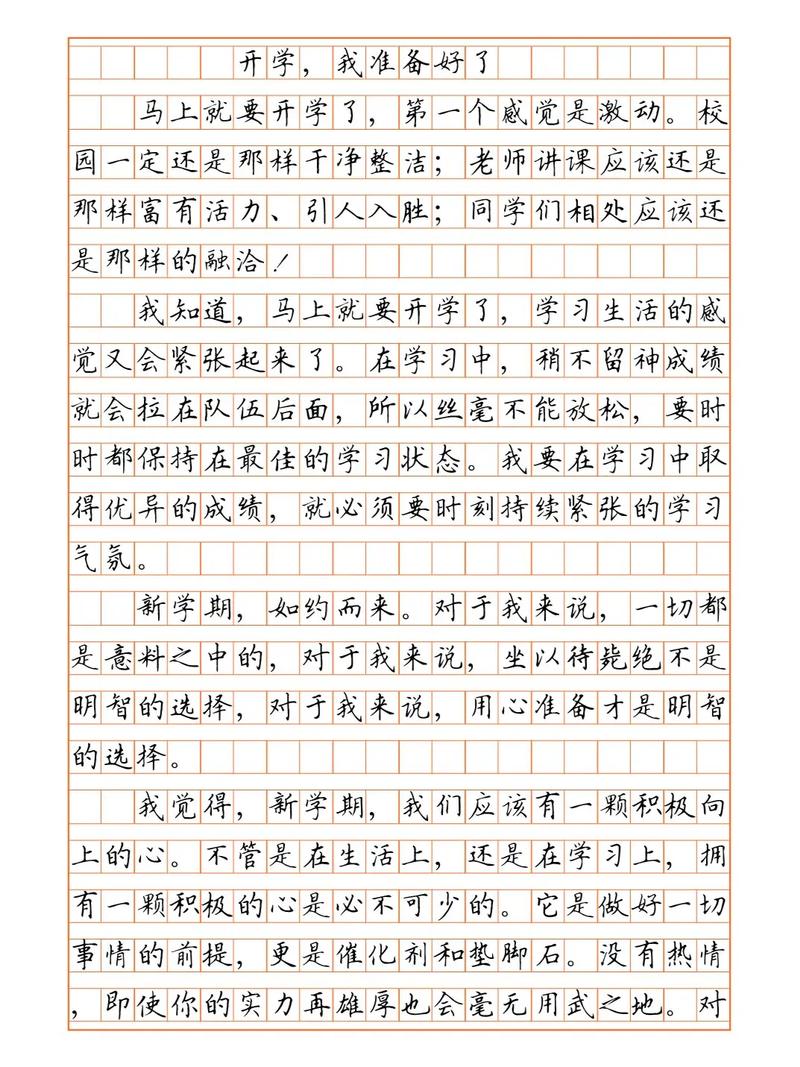 开学，我准备好了
马上就要开学了，第一个感觉是激动。校
园一定还是那样干净整洁；老师讲课应该还是
那样富有活力、引人入胜；同学们相处应该还
是那样的融洽！
我知道，马上就要开学了，学习生活的感
觉又会紧张起来了。在学习中，稍不留神成绩
就会拉在队伍后面，所以丝毫不能放松，要时
时都保持在最佳的学习状态。我要在学习中取
得优异的成绩，就必须要时刻持续紧张的学习
气氛。
新学期，如约而来。对于我来说，一切都
是意料之中的，对于我来说，坐以待毙绝不是
明智的选择，对于我来说，用心准备才是明智
的选择。
我觉得，新学期，我们应该有一颗积极向
上的心。不管是在生活上，还是在学习上，拥
有一颗积极的心是必不可少的。它是做好一切
事情的前提，更是催化剂和垫脚石。没有热情
，即使你的实力再雄厚也会毫无用武之地。对